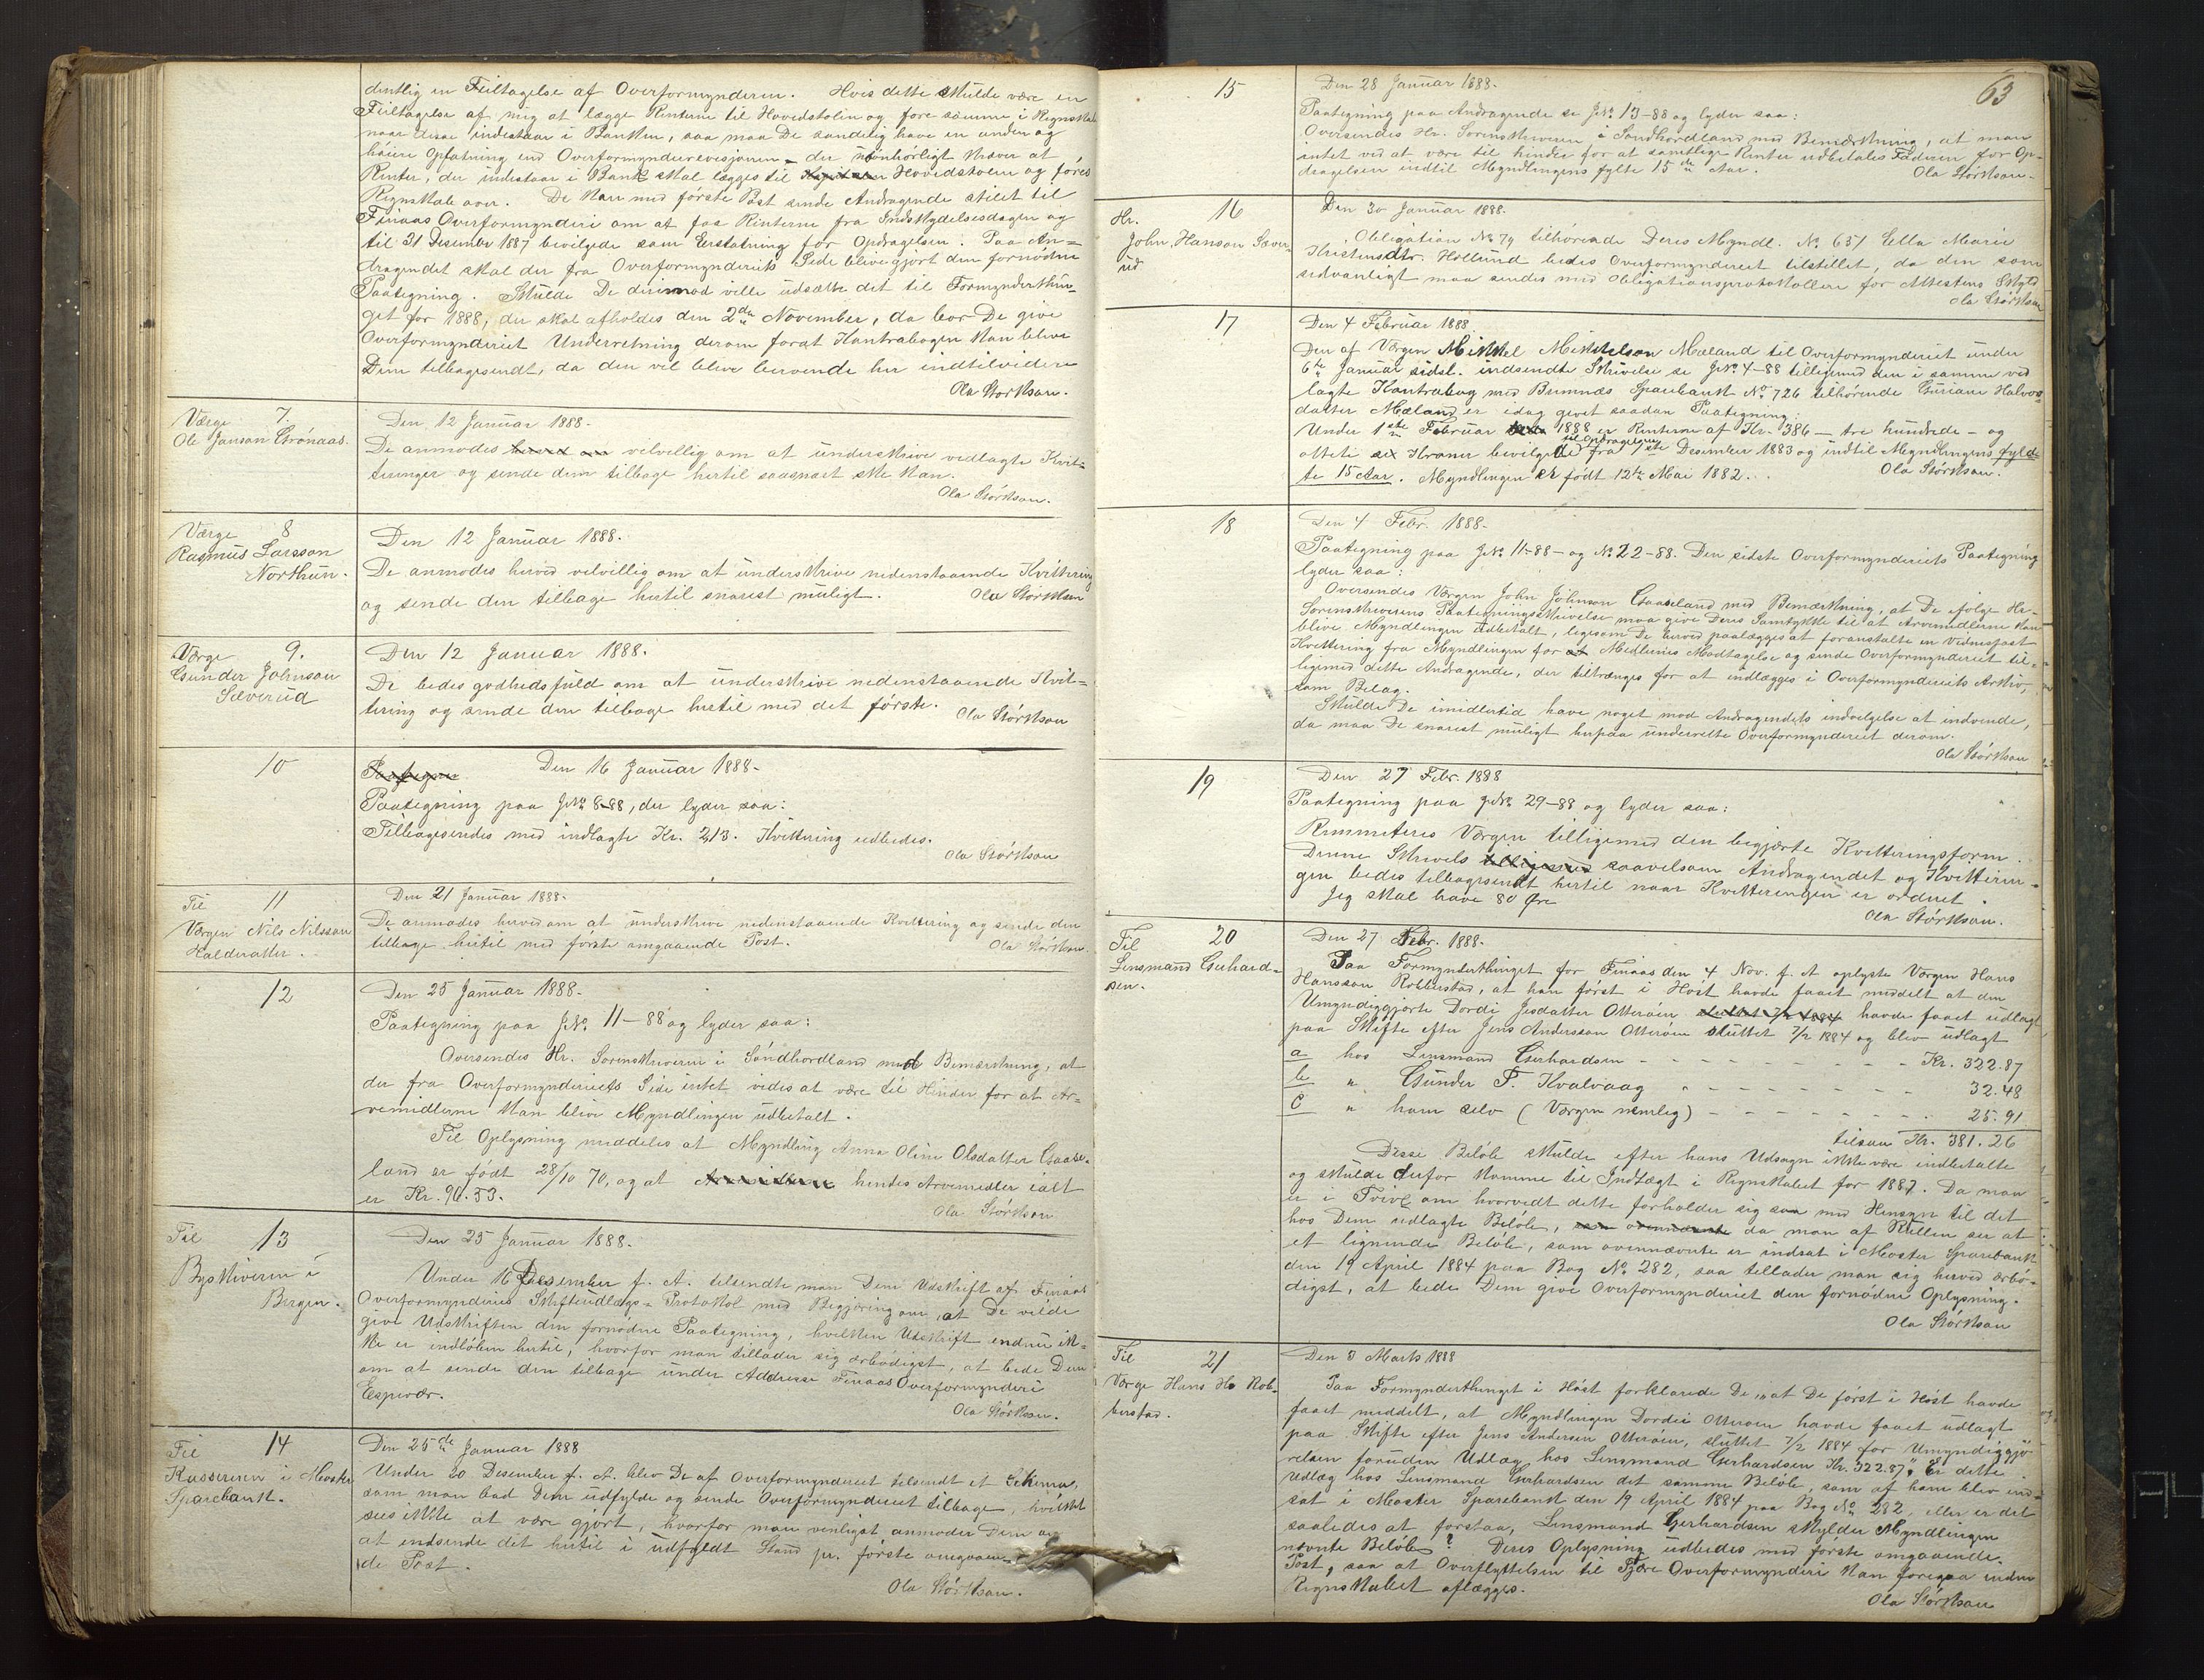 dentlig en Feiltagelse af Overformynderen. Hvis dette skulde være en
Feiltagelse af mig at lægge Renterne til Hovedstolen og føre samme i Regnskab
naar disse indestaar i Banken, saa maa De sandelig have en anden og
høiere Opfatning end Overformynderrevisjonen - der uønhørligt kræver at
Renter, der indestaar i Bank skal lægges til Hovedstolen og føres
Regnskab over. De kan med første Post sende Andragende stilet til
Finaas Overformynderi om at faa Renterne fra Indskydelsesdagen og
til 31 Desember 1887 bevilgede som Erstatning for Opdragelsen. Paa An=
dragendet skal der fra Overformynderiets Side blive gjort den fornødne
Paategning. Skulde De derimod ville udsætte det til Formynderthin-
get for 1888, der skal afholdes den 2den November, da bør De give
Overformynderiet Underretning derom forat Kontrabogen kan blive
Dem tilbagesendt, da den vil blive beroende her indtilvidere
Ola Størkson.
Værge 7.
Ole Janson Grønaas.
Den 12 Januar 1888.
De anmodes velvillig om at underskrive vedlagte Kvit-
teringer og sende dem tilbage hertil saasnart ske kan.
Ola Størkson.
Værge 8
Rasmus Larsson
Northun.
Den 12 Januar 1888.
De anmodes herved velvillig om at underskrive nedenstaaende Kvittering
og sende den tilbage hertil snarest muligt. Ola Størkson
Værge 9.
Gunder Johnson
Sæverud
Den 12 Januar 1888.
De bedes godhedsfuld om at underskrive nedenstaaende Kvit=
tering og sende den tilbage hertil med det første. Ola Størkson
10
Den 16 Januar 1888.
Paategning paa JNo. 8-88, der lyder saa:
Tilbagesendes med indlagte Kr. 213. Kvittering udbedes.
Ola Størkson
Til 11
Værgen Nils Nilsson
Halderaker.
Den 21 Januar 1888.
De anmodes herved om at underskrive nedenstaaende Kvittering og sende den
tilbage hertil med første omgaaende Post. Ola Størkson.
12
Den 25 Januar 1888.
Paategning paa JNo. 11-88 og lyder saa:
Oversendes Hr. Sorenskriveren i Søndhordland med Bemærkning, at
der fra Overformynderiets Side intet vides at være til Hinder for at Ar=
vemidlerne kan blive Myndlingen udbetalt.
Til Oplysning meddeles at Myndling Anna Oline Olsdatter Gaase-
land er født 28/10 70, og at hendes Arvemidler ialt
er Kr. 90.53.
Ola Størkson
Til 13
Byskriveren i
Bergen.
Den 25 Januar 1888.
Under 16 Desember f. A. tilsendte man Dem Udskrift af Finaas
Overformynderies Skifteudlægs-Protokol med Begjæring om, at De vilde
give Udskriften den fornødne Paategning, hvilken Udskrift endnu ik-
ke er indløben hertil, hvorfor man tillader sig ærbødigst, at bede Dem
om at sende den tilbage under Addresse Finaas Overformynderi
Espevær.
Ola Størkson.
Til 14
Kassereren i Moster
Sparebank.
Den 25de Januar 1888
Under 20 Desember f. A. blev De af Overformynderiet tilsendt et Schema,
som man bad Dem udfylde og sende Overformynderiet tilbage, hvilket
sees ikke at være gjort, hvorfor man venligst anmoder Dem om
at indsende det hertil i udfyldt Stand pr. første omgaaen-
de Post.
Ola Størkson.
63
15
Den 28 Januar 1888.
Paategning paa Andragende se JNo. 13-88 og lyder saa:
Oversendes Hr. Sorenskriveren i Søndhordland med Bemærkning, at man
intet ved at være til hinder for at samtlige Renter udbetales Faderen for Op-
dragelsen indtil Myndlingens fylte 15de Aar. Ola Størkson.
Hr. 16
John Hanson Sæver-
ud
Den 30 Januar 1888.
Obligation No. 79 tilhørende Deres Myndl. No. 651 Ella Marie
Kristensdtr. Høllund bedes Overformynderiet tilstillet, da den som
sedvanligt maa sendes med Obligationsprotokollen for Attestens Skyld
Ola Størkson
17
Den 4 Februar 1888
Den af Værgen Mikkel Mikkelson Mæland til Overformynderiet under
6te Januar sidstl. indsendte Skrivelse se JNo. 4-88 tilligemed den i samme ved
lagte Kontrabog med Bremnes Sparebank No. 726 tilhørende Guriane Halvor-
datter Mæland er idag givet saadan Paategning:
Under 1ste Februar 1888 er Renterne af Kr. 386 - tre hundrede - og
otteti sex Kroner bevilgede til Opdragelsen fra 1ste Desember 1883 og indtil Myndlingens fyld-
te 15 Aar. Myndlingen er født 12te Mai 1882. Ola Størkson.
18
Den 4 Febr. 1888.
Paategning paa JNo. 11-88- og No. 22-88. Den sidste Overformynderiets Paategning
lyder saa:
Oversendes Værgen John Johnson Gaaseland med Bemærkning, at De ifølge Hr.
Sorenskriverens Paategningsskrivelse maa give Deres Samtykke til at Arvemidlerne kan
blive Myndlingen udbetalt, ligesom De herved paalægges at foranstalte en vidnesfast
Kvittering fra Myndlingen for Midlernes Modtagelse og sende Overformynderiet til-
ligemed dette Andragende, der tiltrænges for at indlægges i Overformynderiets Arkiv,
som Bilag.
Skulde De imidlertid have noget mod Andragendets indvilgelse at indvende,
da maa De snarest muligt herpaa underrette Overformynderiet derom.
Ola Størkson
19
Den 27 Febr. 1888
Paategning paa JNo. 29-88 og lyder saa:
Remmiteres Værgen tilligemed den begjærte Kvitteringsform.
Denne Skrivels saavelsom Andragendet og Kvitterin-
gen bedes tilbagesendt hertil naar Kvitteringen er ordnet.
Jeg skal have 80 Øre
Ola Størkson.
Til 20
Lensmand Gerhard-
sen.
Den 27 Febr. 1888.
Paa Formynderthinget for Finaas den 4 Nov. f. A oplyste Værgen Hans
Hansson Robberstad, at han først i Høst havde faaet meddelt at den
Umyndiggjorte Dordi Jesdatter Otterøen havde faaet udlagt
paa Skifte efter Jens Andersson Otterøen sluttet 7/2 1884 og blev udlagt
a hos Lensmand Gerhardsen - - - - - Kr. 322.87
b " Gunder T. Kvalvaag " - - - - - 32.48
c " ham selv (Værgen nemlig) - - - - - 25.91
tilsam Kr. 381.26
Disse Beløb skulde efter hans Udsagn ikke være indbetalte
og skulde derfor komme til Indtægt i Regnskabet for 1887. Da man
er i Tvivl om hvorvidt dette forholder sig saa med Hensyn til det
hos Dem udlagte Beløb, da man af Rullen ser at
et lignende Beløb, som ovennævnte er indsat i Moster Sparebank
den 19 April 1884 paa Bog No. 282, saa tillader man sig herved ærbø-
digst, at bede Dem give Overformynderiet den fornødne Oplysning.
Ola Størkson
Til 21
Værge Hans H. Rob-
berstad.
Den 3 Marts 1888
Paa Formynderthinget i Høst forklarede De, at De først i Høst havde
faaet meddelt, at Myndlingen Dordi Otterøen havde faaet udlagt
paa Skifte efter Jens Andersen Otterøen, sluttet 7/2 1884 for Umyndiggjø-
relsen foruden Udlæg hos Lensmand Gerhardsen Kr. 322.87. Er dette
Udlæg hos Lensmand Gerhardsen det samme Beløb, som af ham blev ind-
sat i Moster Sparebank den 19 April 1884 paa Bog No. 282, eller er det
saaledes at forstaa, Lensmand Gerhardsen skylder Myndlingen
nævnte Beløb? Deres Oplysning udbedes med første omgaaende
Post, saa at Overflyttelsen til Fjære Overformynderi kan foregaa inden
Regnskabet aflægges.
Ola Størkson